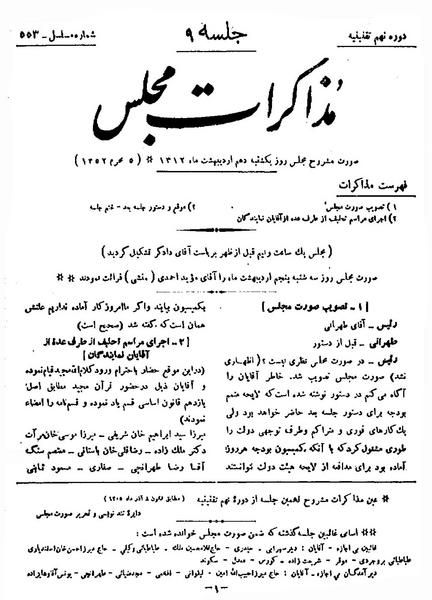 دوره نهم تقنینیه
جلسه ۹
شماره مسلسل - ۵۵۳
مذاکرات مجلس
صورت مشروح مجلس روز یکشنبه دهم اردیبهشت ماه ۱۳۱۲ * (۵ محرم ۱۳۵۲)
فهرست مذاکرات
۱) تصویب صورت مجلس
۲) اجرای مراسم تحلیف از طرف عده از آقایان نمایندگان
۳) موقع و دستور جلسه بعد - ختم جلسه
(مجلس یک ساعت و نیم قبل از ظهر بریاست آقای دادگر تشکیل گردید)
صورت مجلس روز سه شنبه پنجم اردیبهشت ماه را آقای مؤید احمدی (منشی) قرائت نمودند
[۱ - تصویب صورت مجلس]
رئیس - آقای طهرانی
طهرانی - قبل از دستور
رئیس - در صورت مجلس نظری نیست؟ (اظهاری
نشد) صورت مجلس تصویب شد. خاطر آقایان را
آگاه می کنم در دستور نوشته شده است که لایحه متمم
بودجه برای دستور جلسه بعد حاضر خواهد بود ولی
یک کارهای فوری و متراکم وطرف توجهی دولت را
طوری مشغول کرد که با آنکه کمیسیون بودجه هر روز
آماده بود برای مدافعه از لایحه هیئت دولت نتوانستند
بکمیسیون بیایند واگر ما امروز کار آماده نداریم علتش
همان است که گفته شد (صحیح است)
[۲ - اجرای مراسم تحلیف از طرف عده از
آقایان نمایندگان]
(در این موقع حضار باحترام ورود کلام الله مجید قیام نموده
و آقایان ذیل در حضور قرآن مجید مطابق اصل
یازدهم قانون اساسی قسم یاد نموده و قسم نامه را امضاء
نمودند)
میرزا سید ابراهیم خان شریفی - میرزا موسی خان مرآت
دکتر ملک زاده - رضاقلی خان باستانی - معتصم سنگ
آقا رضا طهرانچی - صفاری - مسعود ثابتی
عین مذاکرات مشروح نهمین جلسه از دورهٔ نهم تقنینیه
دایرهٔ تند نویسی و تحریر صورت مجلس
اسامی غائبین جلسه گذشته که ضمن صورت مجلس خوانده شده است:
- ۱ -